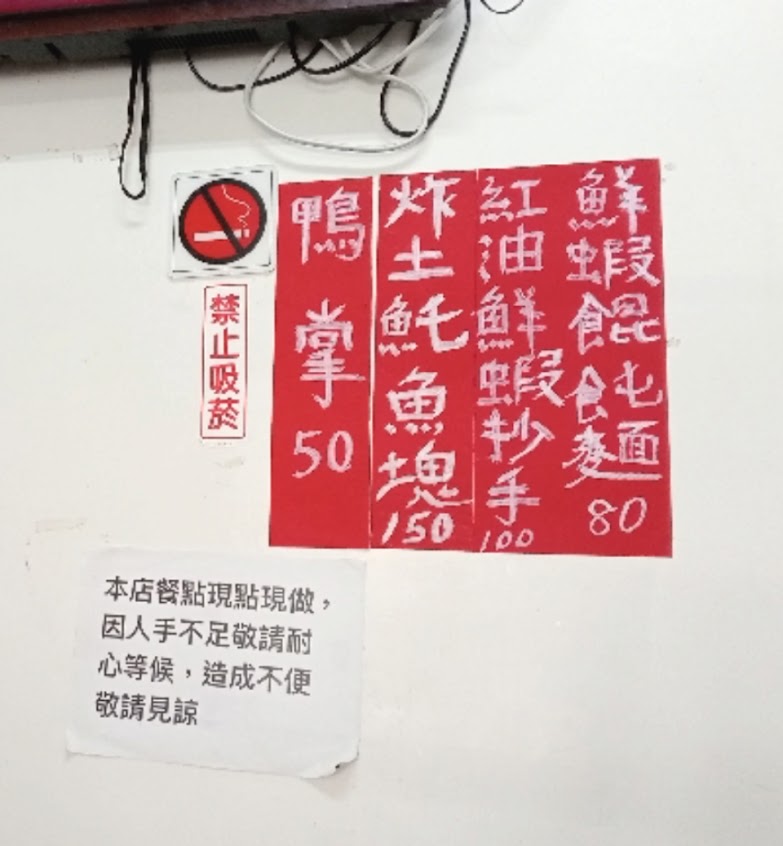 鮮蝦餛飩麵80
紅油鮮蝦抄手100
炸土魠魚塊150
鴨掌50
禁止吸菸
本店餐點現點現做，
因人手不足敬請耐
心等候，造成不便
敬請見諒